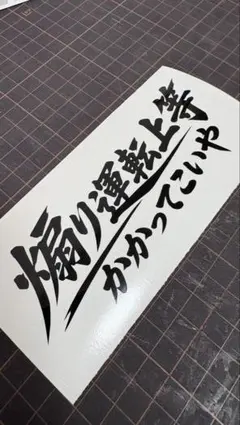 煽り運転上等
かかってこいや